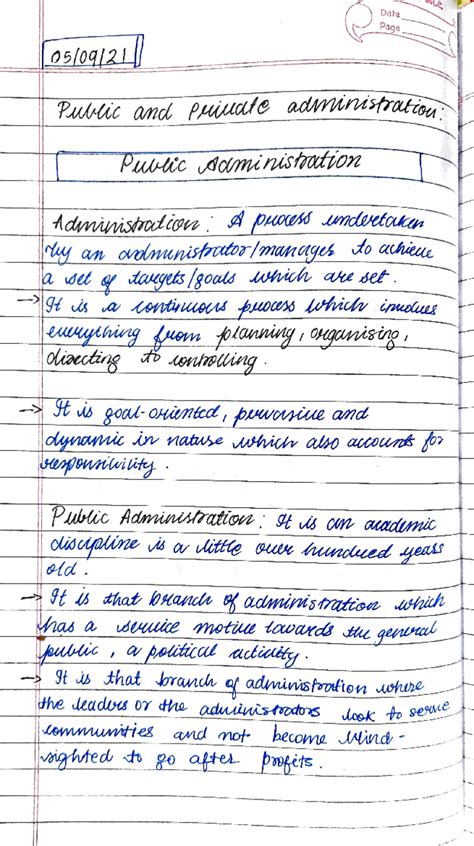 Date
Page
05/09/21
Public and private administration:
Public Administration
Administration: A process undertaken
by an administrator/manager to achieve
a set of targets/goals which are set.
→ It is a continuous process which involves
everything from planning, organising,
directing to controlling.
→ It is goal-oriented, pervasive and
dynamic in nature which also accounts for
responsibility.
Public Administration: It is an academic
discipline is a little over hundred years
old.
→ It is that branch of administration which
has a service motive towards the general
public, a political activity.
→ It is that branch of administration where
the leaders or the administrators look to serve
communities and not become blind-
sighted to go after profits.